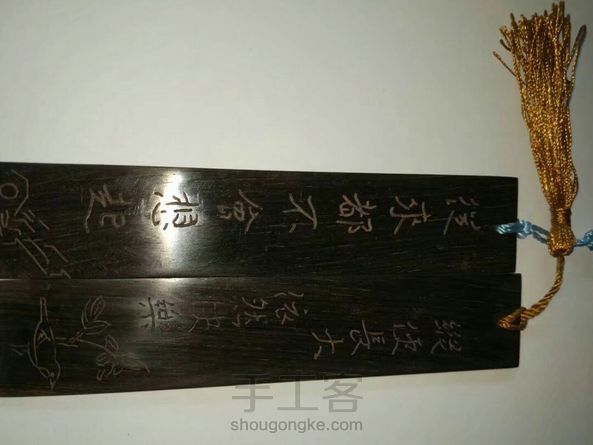 從來都不會想起
長大
依然快樂
手工客
shougongke.com